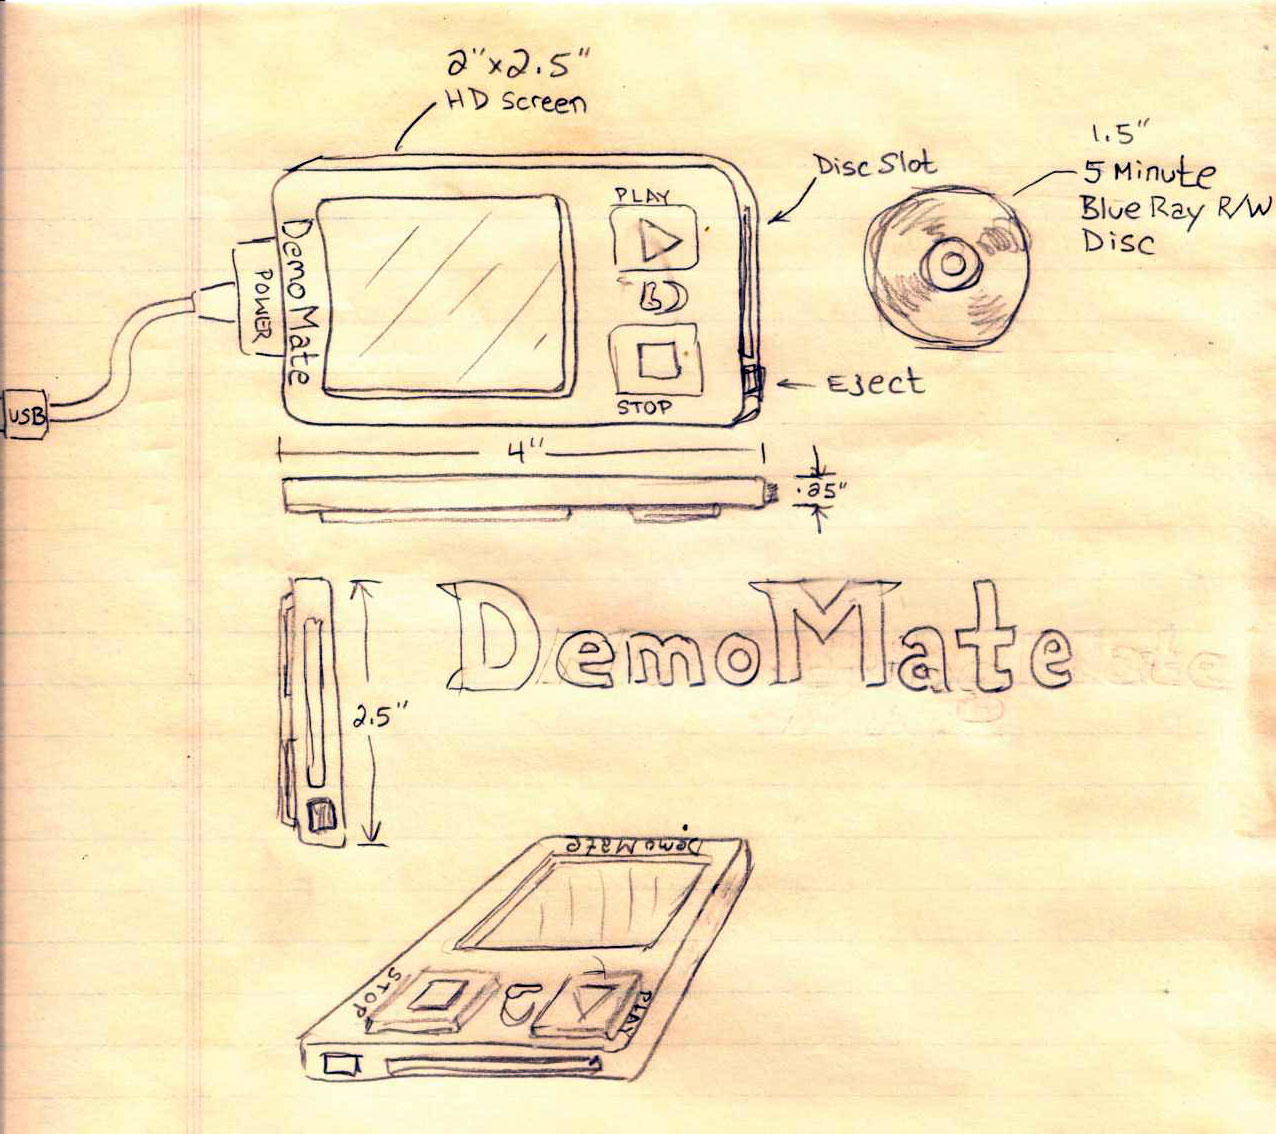 2"x2.5"
HD Screen
Disc Slot
1.5"
5 Minute
Blue Ray R/W
Disc
PLAY
DemoMate
POWER
USB
STOP
Eject
4"
.25"
DemoMate
2.5"
DemoMate
STOP
PLAY